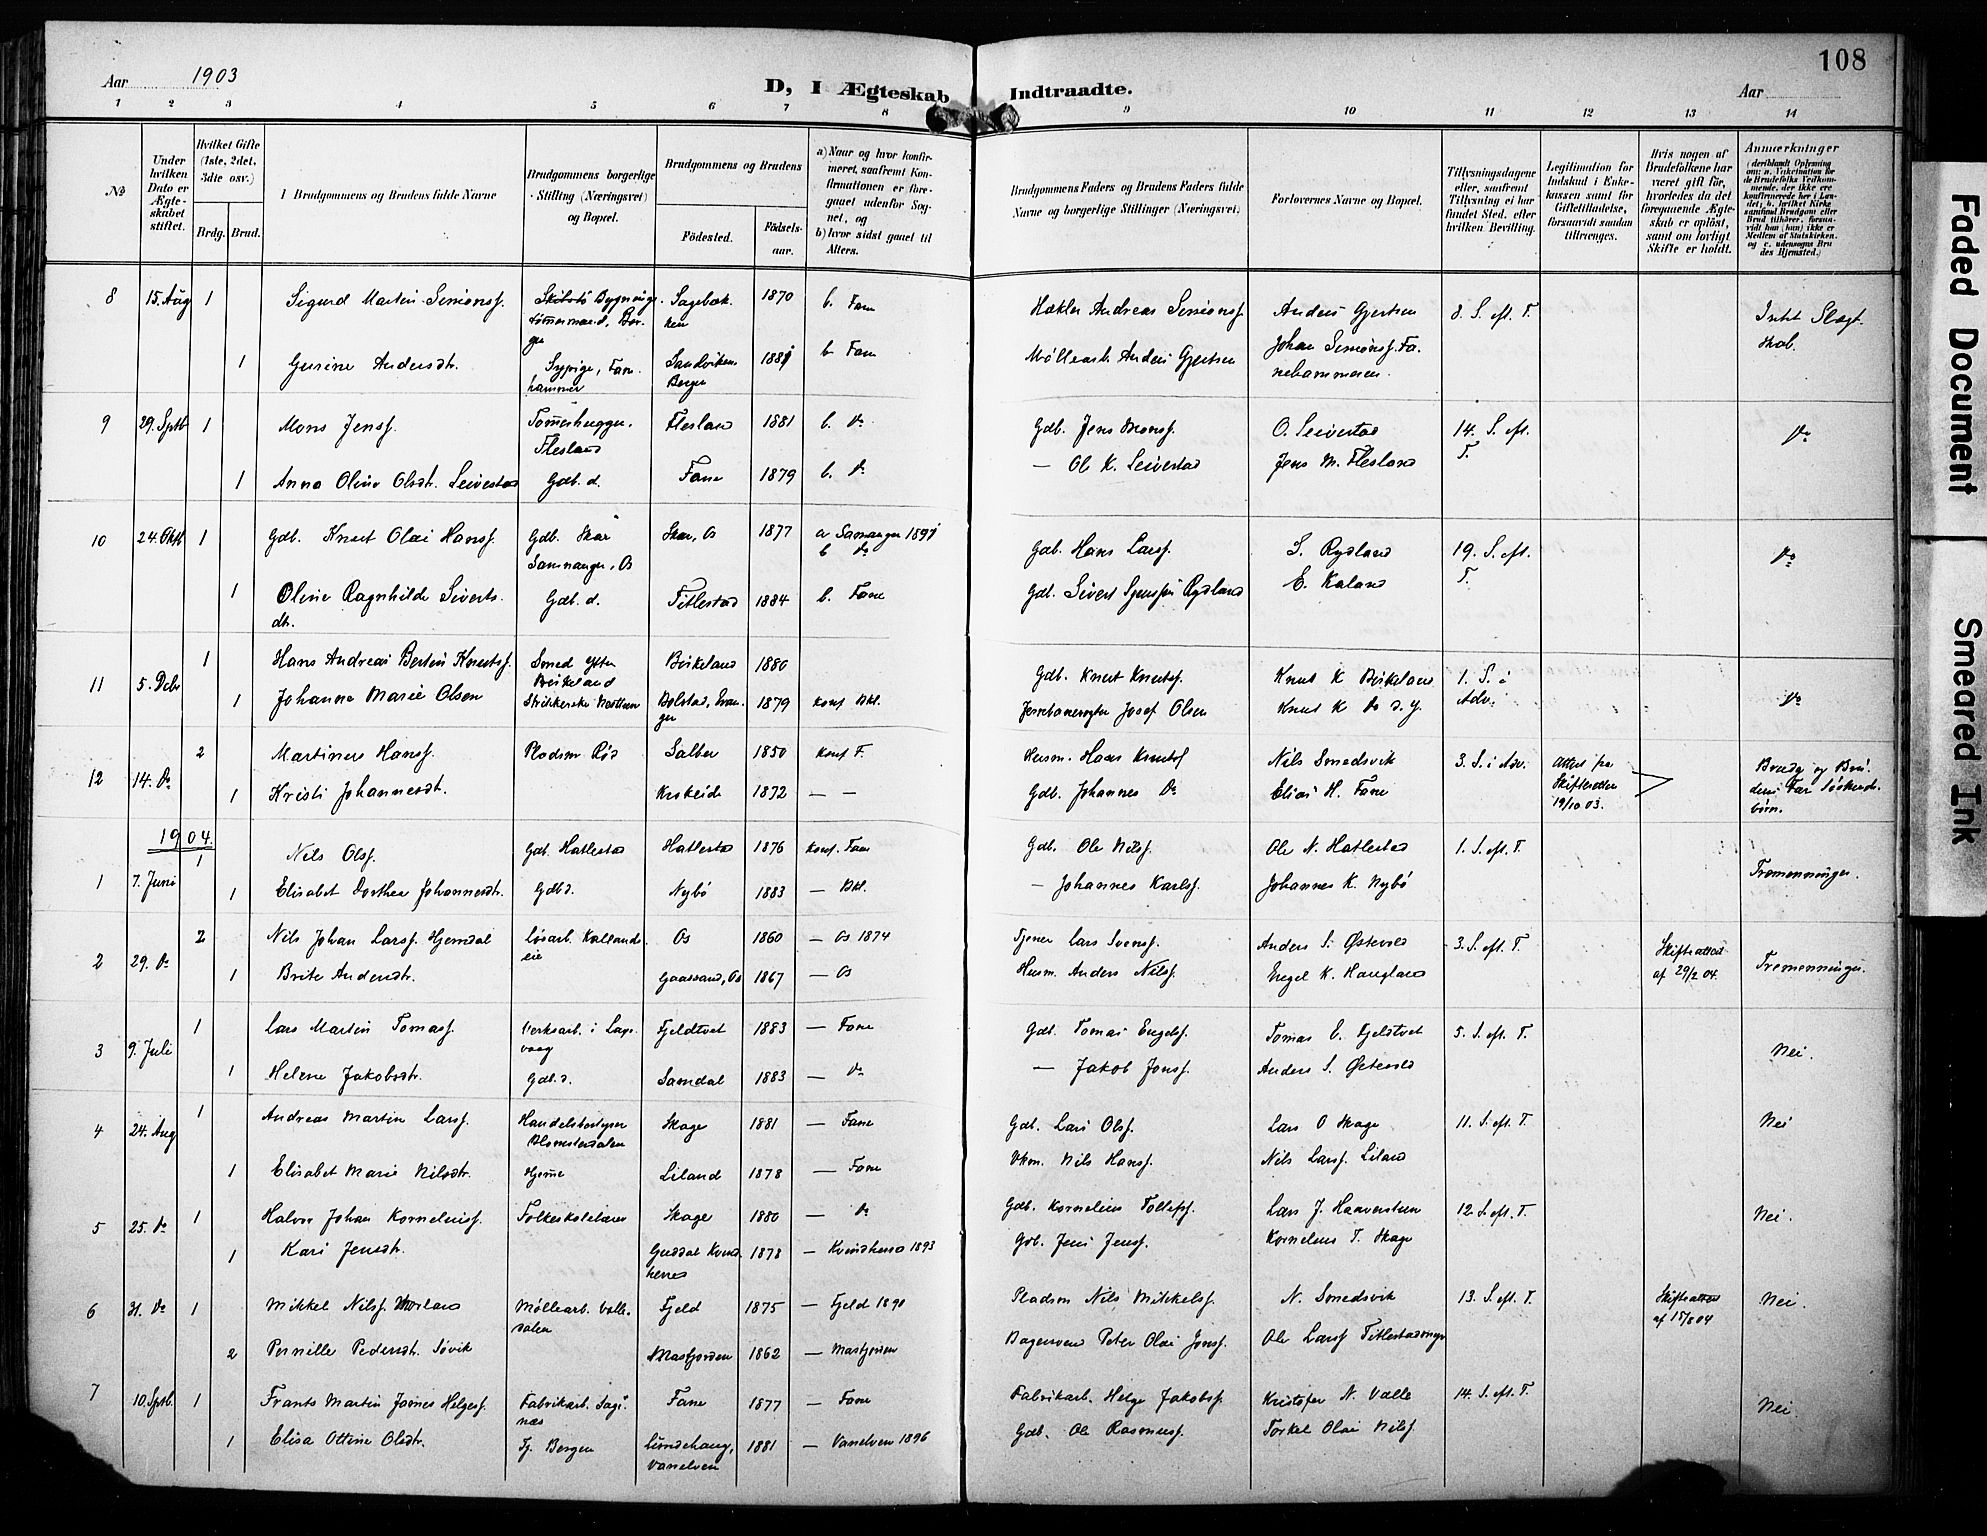 108
Aar 1903
D, I Ægteskab Indtraadte.
Aar
1 2 3 4 5 6 7 8 9 10 11 12 13 14
No
Under hvilken Dato er Ægteskabet stiftet.
Hvilket Gifte (1ste, 2det, 3die osv.)
Brdg. Brud.
Brudgommens og Brudens fulde Navne
Brudgommens borgerlige Stilling (Næringsvei) og Bopæl.
Brudgommens og Brudens
Fødested.
Fødselsaar.
a) Naar og hvor konfirmeret, saafremt Konfirmationen er foregaaet udenfor Sognet, og
b) hvor sidst gaaet til Alters.
Brudgommens Faders og Brudens Faders fulde Navne og borgerlige Stillinger (Næringsvei)
Forlovernes Navne og Bopæl.
Tillysningsdagene eller, saafremt Tillysning ei har fundet Sted. efter hvilken Bevilling.
Legitimation for Indskud i Enkekassen samt for Giftetilladelse, forsaavidt saadan tiltrænges.
Hvis nogen af Brudefolkene har været gift før, hvorledes da det foregaaende Ægteskab er opløst, samt om lovligt Skifte er holdt.
Anmærkninger
8 15. Aug 1 Sigurd Martin Simonsf. Bygningstømmermand, 1870 b. Fane Andreas Simonsf. Anders Gjertsen 8. S. eft. T. Intet Slægtskab.
1 Gurine Andersdtr. Sypige, Fanehammer Sandviken Bergen 1881 b. Fane Møllearb. Anders Gjertsen Johan Simonsf. Fanehammeren.
9 29. Septb 1 Mons Jensf. Tømmerhugger, Flesland Flesland 1881 b. do Gdb. Jens Monsf. O. Seivestad 14. S. eft. T. do
1 Anna Oline Olsdtr. Seivestad Gdb. d. Fane 1879 b. do — Ole K. Seivestad Jens M. Flesland
10 24. Oktb 1 Gdb. Knut Olai Hansf. Gdb. Skår Samnanger, Os Skår, Os 1877 a Samnanger 1891 b do Gdb. Hans Larsf. S. Rydland 19. S. eft. T. do
1 Oline Ragnhilde Sivertsdtr. Gdb. d. Titlestad 1884 b. Fane Gdb. Sivert Rydland E. Kaland
11 5. Decbr 1 Hans Andreas Bertin Knutsf. Smed Birkeland Birkeland 1880 Gdb. Knut Knutsf. Knut K Birkeland 1. S. i Adv. do
1 Johanna Marie Olsen Strikkerske Nesttun Bolstad, 1879 konf Bkl. Josef Olsen Knut K do d. y.
12 14. do 2 Martinus Hansf. Pladsm Rød Salbu 1850 konf F. Husm. Hans Knutsf Nils Smedsvik 3. S. i Adv. Attest fra Skifteretten 19/10 03. Brudg og Brudens Far Søskendebørn.
1 Kristi Johannesdtr. Krokeide 1872 — — Gdb. Johannes do Elias H. Fane
1904.
1 7. Juni 1 Nils Olsf. Gdb. Hatlestad Hatlestad 1876 konf. Fane Gdb. Ole Nilsf. Ole N. Hatlestad 1. S. eft. T. Tremenninger.
1 Elisabet Dorthea Johannesdtr. Gdb d. Nybø 1883 — Bkl. — Johannes Karlsf. Johannes K. Nybø
2 29. do 2 Nils Johan Larsf. Hjemdal løsarb. Kallandseie Os 1860 — Os 1874 Tjener Lars Svensf. Anders S. Østevold 3. S. eft. T. Skifteattest af 29/2 04. Tremenninger.
1 Brite Andersdtr. Gaassand, Os 1867 — Os Husm. Anders Nilsf. Engel K. Haugland
3 9. Juli 1 Lars Martin Tomasf. Verksarb. i Laxevaag Fjeldtvet 1883 — Fane Gdb. Tomas Engelsf. Tomas E. Fjeldtvet 5. S. eft. T. Nei.
1 Helene Jakobsdtr. Gdb. d. Samdal 1883 — do — Jakob Jonsf. Anders S. Østevold
4 24. Aug 1 Andreas Martin Larsf. Handelsbestyrer Blomsterdalen Skage 1881 — Fane Gdb. Lars Olsf. Lars O Skage 11. S. eft. T. Nei
1 Elisabet Marie Nilsdtr. Hjeme Liland 1878 — Fane Nils Hansf. Nils Larsf. Liland
5 25. do 1 Halvor Johan Korneliusf. Folkeskolelærer Skage 1880 — do Gdb. Kornelius Tollefsf. Lars J. Haaverstein 12 S. eft. T. Nei.
1 Kari Jensdtr. Guddal Kvindherred 1878 — Kvindherred 1893 Gdb. Jens Jensf. Kornelius T. Skage
6 31. do 1 Mikkel Nilsf. Morland Møllearb. Valledalen Fjeld 1875 — Fjeld 1890 Pladsm Nils Mikkelsf. N. Smedsvik 13. S. eft. T. Skifteattest af 15/8 04 Nei.
2 Pernille Pedersdtr. Søvik Masfjorden 1862 — Masfjorden Bagersvend Peter Olai Jonsf. Ole Larsf Titlestadmyr
7 10. Septb. 1 Frants Martin James Helgesf. Fabrikarb. Fane 1877 — Fane Fabrikarb. Helge Jakobsf. Kristofer N. Valle 14. S. eft. T. Nei.
1 Elisa Ottine Olsdtr. Tj. Bergen Lundehaug, Vanelven 1881 — Vanelven 1896 Gdb. Ole Rasmusf. Torkel Olai Nilsf.
Faded Document
Smeared Ink